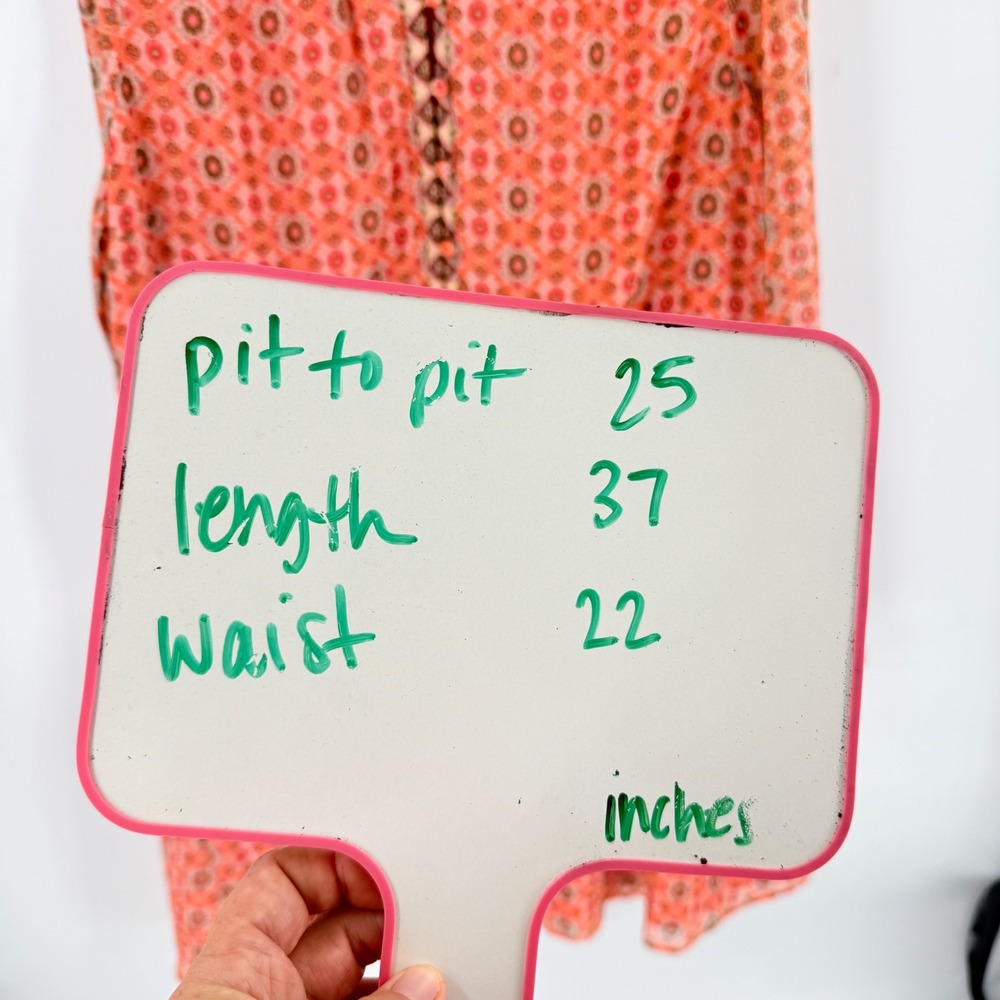 pit to pit 25
length 37
waist 22
inches